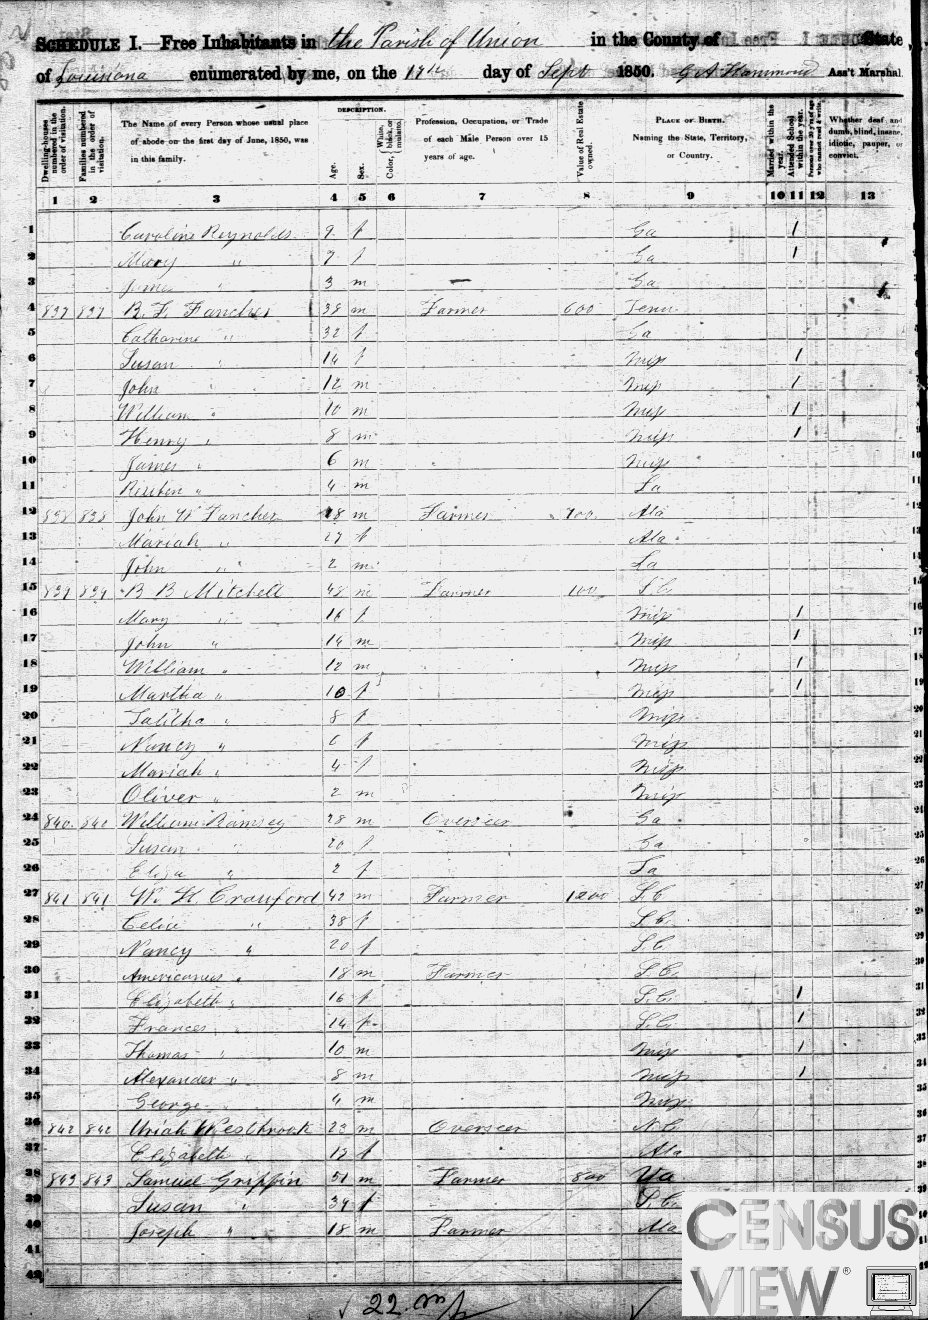 SCHEDULE I.—Free Inhabitants in the Parish of Union in the County of State
of Louisiana enumerated by me, on the 17th day of Sept 1850. G A Hammond Ass't Marshal.
Dwelling-houses numbered in the order of visitation.
Families numbered in the order of visitation.
The Name of every Person whose usual place of abode on the first day of June, 1850, was in this family.
DESCRIPTION.
Age.
Sex.
Color, White, black, or mulatto.
Profession, Occupation, or Trade of each Male Person over 15 years of age.
Value of Real Estate owned.
PLACE OF BIRTH. Naming the State, Territory, or Country.
Married within the year.
Attended School within the year.
Persons over 20 y'rs of age who cannot read & write.
Whether deaf and dumb, blind, insane, idiotic, pauper, or convict.
1 2 3 4 5 6 7 8 9 10 11 12 13
1 Caroline Reynolds 9 f Ga 1
2 Mary " 7 f Ga 1
3 " 3 m Ga
4 837 837 B. F. Fancher 38 m Farmer 600 Tenn
5 Catharine " 32 f Ga
6 Susan " 14 f Mip 1
7 John " 12 m Mip 1
8 William " 10 m Mip 1
9 Henry " 8 m Mip 1
10 James " 6 m Mip
11 Reuben " 4 m La
12 838 838 John W Fancher 28 m Farmer 700 Ala
13 Mariah " 27 f Ala
14 John " 2 m La
15 839 839 B B Mitchell 48 m Farmer 100 S C
16 Mary " 16 f Mip 1
17 John " 14 m Mip 1
18 William " 12 m Mip 1
19 Martha " 10 f Mip 1
20 Talitha " 8 f Mip
21 Nancy " 6 f Mip
22 Mariah " 4 f Mip
23 Oliver " 2 m Mip
24 840 840 William Ramsey 28 m Overseer Ga
25 Susan " 20 f Ga
26 Eliza " 2 f La
27 841 841 W. H. Crawford 42 m Farmer 1200 S. C
28 Celia " 38 f S. C.
29 Nancy " 20 f S. C
30 Americanus " 18 m Farmer S C.
31 Elizabeth " 16 f S. C. 1
32 Frances " 14 f S. C. 1
33 Thomas " 10 m Mip 1
34 Alexander " 8 m Mip 1
35 George " 4 m Mip
36 842 842 Uriah Westbrook 23 m Overseer N. C.
37 Elizabeth " f Ala
38 843 843 Samuel Griffin 51 m Farmer 800 Va
39 Susan " 39 f S. C.
40 Joseph " 18 m Farmer Ala
41
42
22 m
CENSUS
VIEW ®